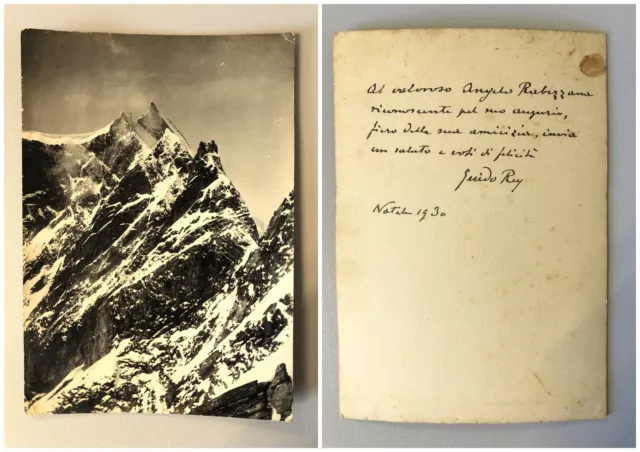 Al valoroso Angelo Rabezzana
riconoscente pel suo augurio,
fiero della sua amicizia, invia
un saluto e voti di felicità
Guido Rey
Natale 1930